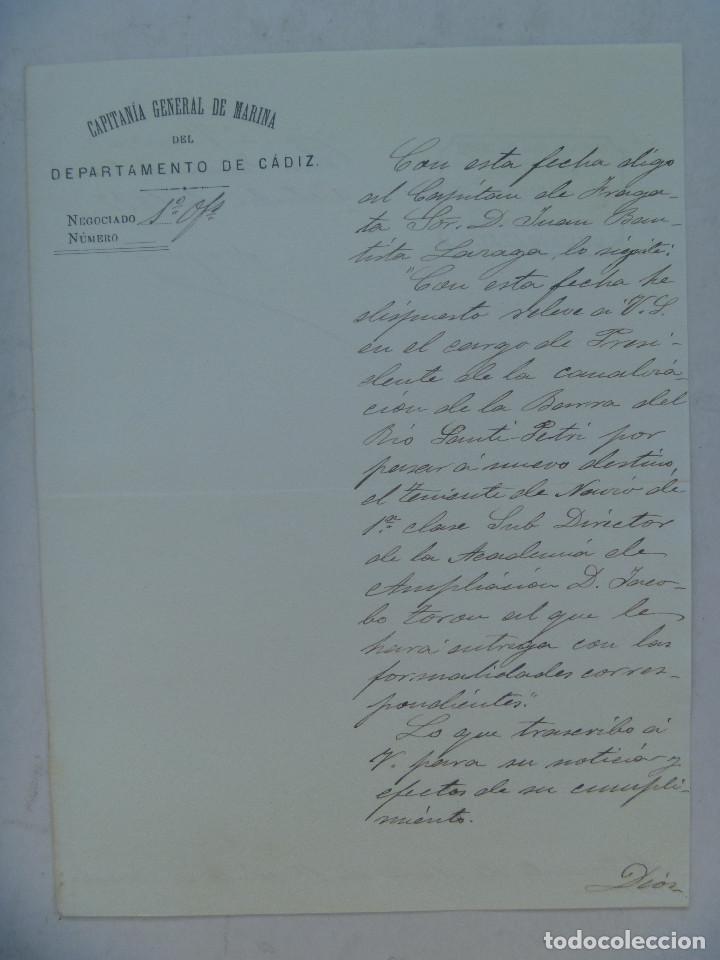 CAPITANÍA GENERAL DE MARINA
DEL
DEPARTAMENTO DE CÁDIZ.
NEGOCIADO 1º Ofs
NÚMERO
Con esta fecha digo
al Capitan de Fraga-
ta Sor. D. Juan Bau-
tista Lazaga lo sigte:
"Con esta fecha he
dispuesto releve á V.S.
en el cargo de Presi-
dente de la canaliza-
ción de la Barra del
Rio Santi-Petri por
pasar á nuevo destino,
el teniente de Navio de
1ª clase Sub Director
de la Academia de
Ampliación D. Jaco-
bo Toron al que le
hará entrega con las
formalidades corres-
pondientes".
Lo que trascribo á
V. para su noticia y
efectos de su cumpli-
miento.
Dios
todocoleccion